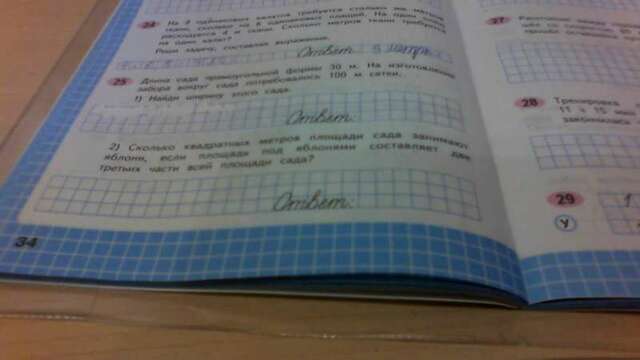 24 На 9 одинаковых халатов требуется столько же метров
ткани, сколько на 6 одинаковых плащей. На один плащ
расходуется 4 м ткани. Сколько метров ткани требуется
на один халат?
Реши задачу, составляя выражение.
Ответ:
25 Длина сада прямоугольной формы 30 м. На изготовление
забора вокруг сада потребовалось 100 м сетки.
1) Найди ширину этого сада.
Ответ:
2) Сколько квадратных метров площади сада занимают
яблони, если площади под яблонями составляет две
третьих части всей площади сада?
Ответ:
34
27
28 Тренировка
11 ч 15 мин
закончилась
29 1
У